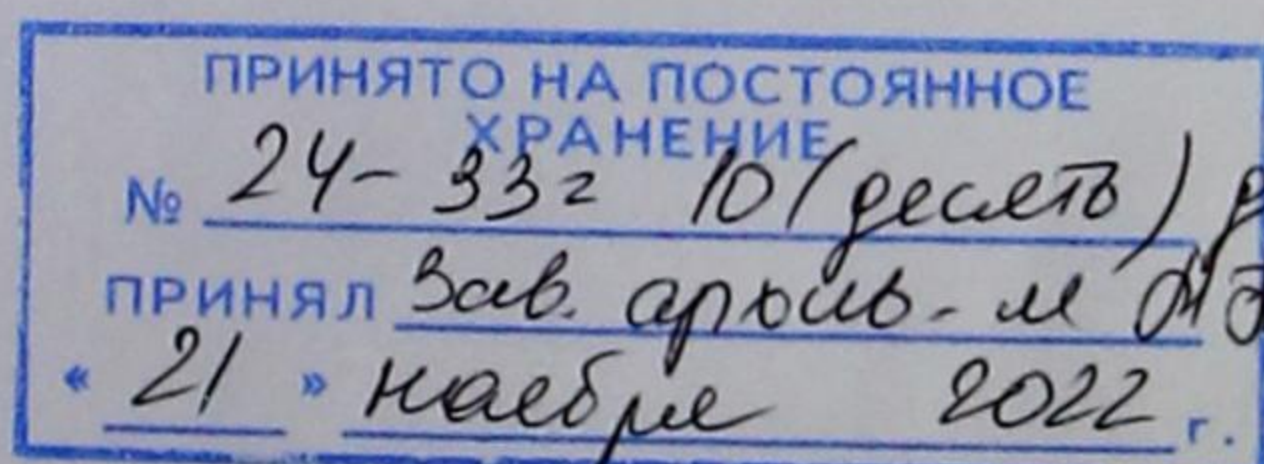 ПРИНЯТО НА ПОСТОЯННОЕ
ХРАНЕНИЕ
№ 24-33г 10 (десять)
ПРИНЯЛ Зав. архив-м
« 21 » ноября 2022 г.